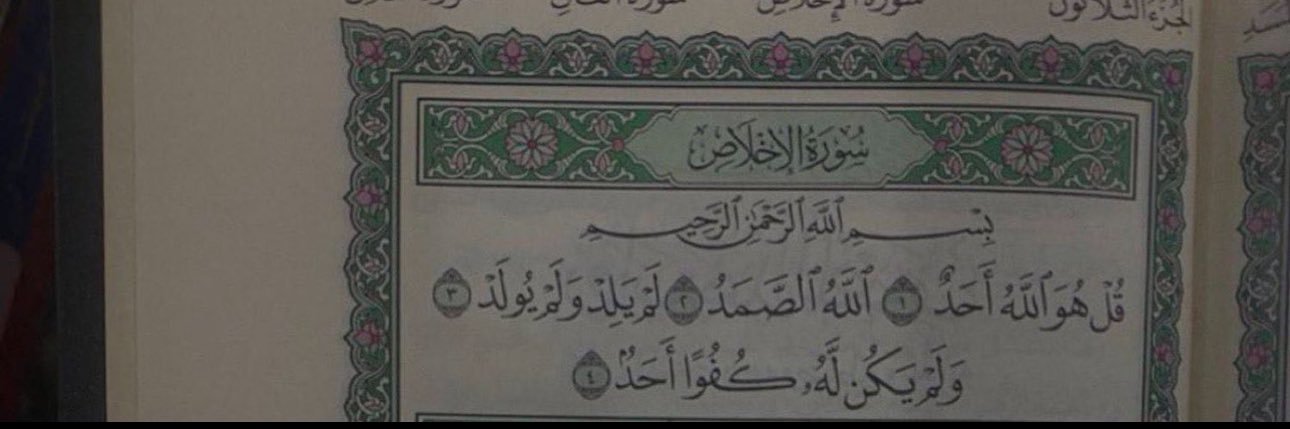 الجزء الثلاثون سورة الإخلاص
سُورَةُ الإِخْلَاصِ
بِسْمِ ٱللَّهِ ٱلرَّحْمَٰنِ ٱلرَّحِيمِ
قُلْ هُوَ ٱللَّهُ أَحَدٌ ١ ٱللَّهُ ٱلصَّمَدُ ٢ لَمْ يَلِدْ وَلَمْ يُولَدْ ٣
وَلَمْ يَكُن لَّهُۥ كُفُوًا أَحَدٌۢ ٤